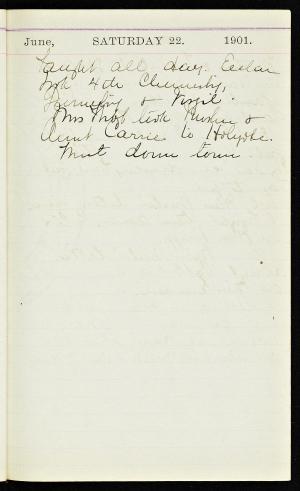 June, SATURDAY 22. 1901.
Taught all day.
took 4th Chemistry,
Geometry & Virgil.
Mrs took &
Aunt Carrie to Holyoke.
Went down town